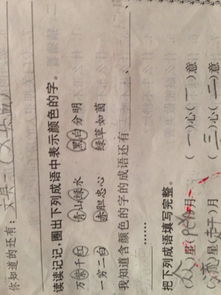 你知道的还有：
读读记记，圈出下列成语中表示颜色的字。
万紫千红 青山绿水 黑白分明
一穷二白 赤胆忠心 绿草如茵
我知道含颜色的字的成语还有
……
把下列成语填写完整。
星 月 (一)心(一)意
星 月 三心(二)意